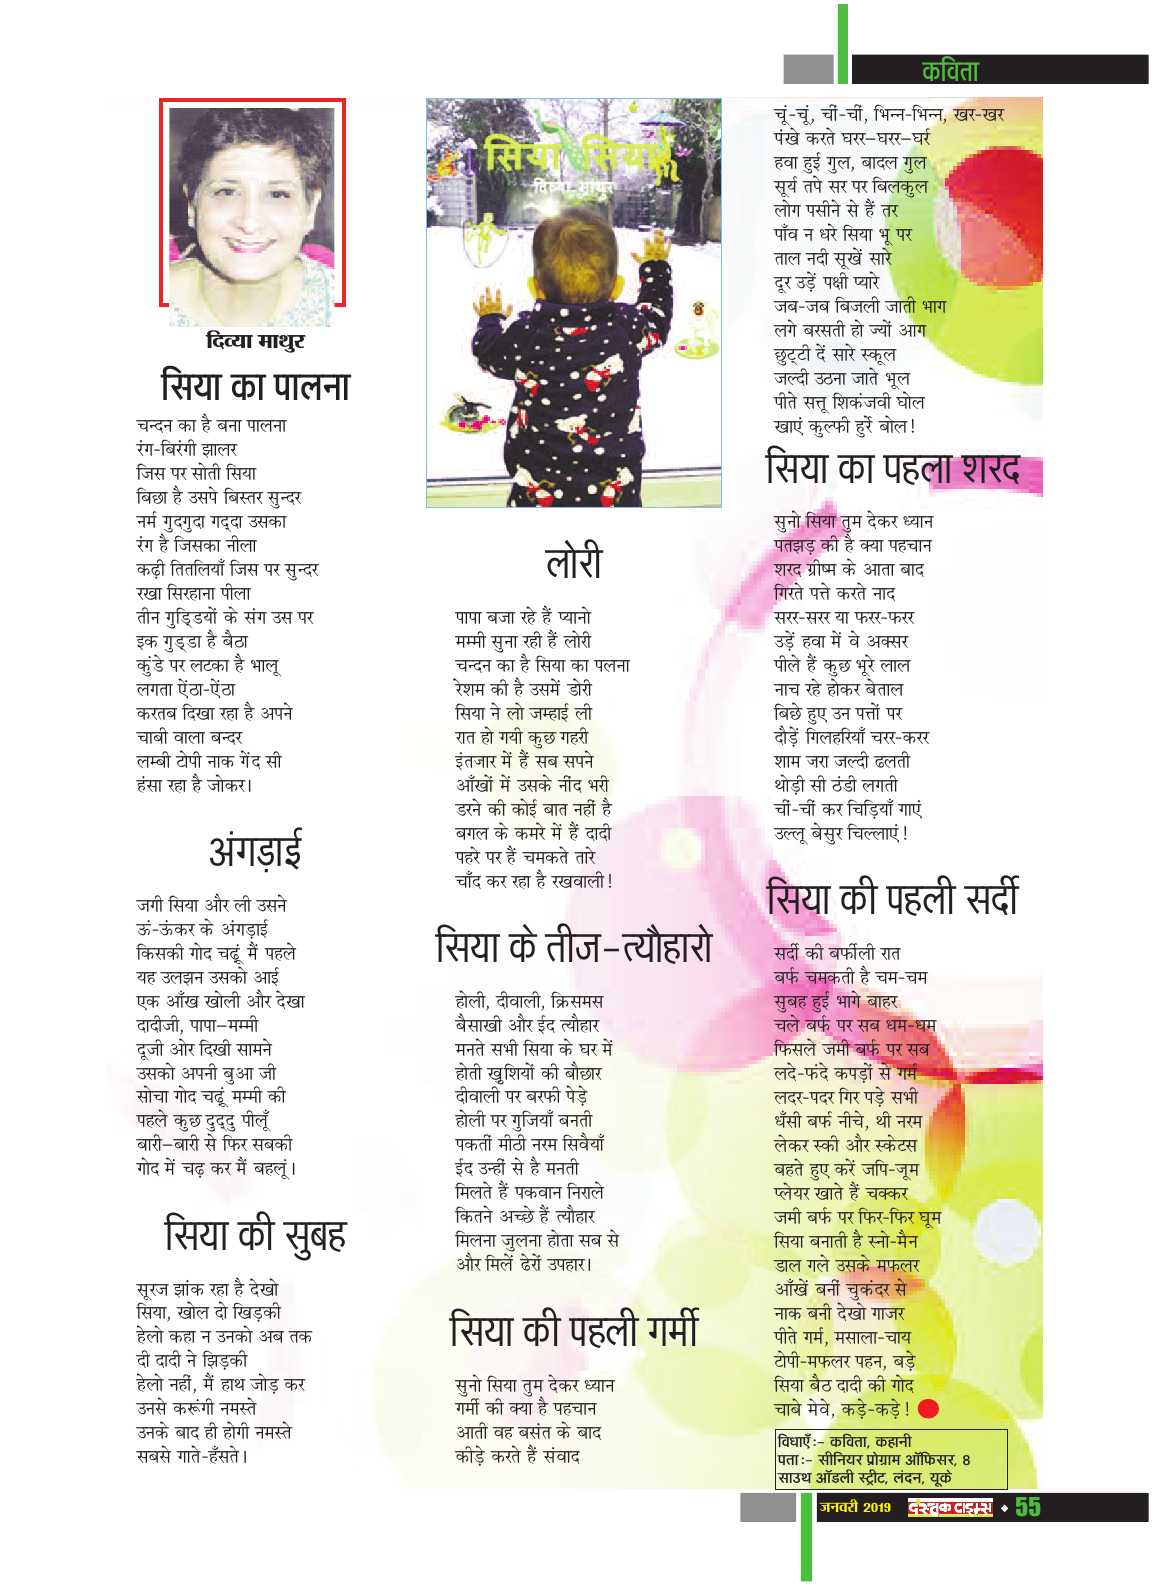 कविता
दिव्या माथुर
सिया का पालना
चन्दन का है बना पालना
रंग-बिरंगी झालर
जिस पर सोती सिया
बिछा है उसपे बिस्तर सुन्दर
नर्म गुदगुदा गद्‌दा उसका
रंग है जिसका नीला
कढ़ी तितलियाँ जिस पर सुन्दर
रखा सिरहाना पीला
तीन गुड्‌डियों के संग उस पर
इक गुड्‌डा है बैठा
कुंडे पर लटका है भालू
लगता ऐंठा-ऐंठा
करतब दिखा रहा है अपने
चाबी वाला बन्दर
लम्बी टोपी नाक गेंद सी
हंसा रहा है जोकर।
अंगड़ाई
जगी सिया और ली उसने
ऊं-ऊंकर के अंगड़ाई
किसकी गोद चढ़ूं मैं पहले
यह उलझन उसको आई
एक आँख खोली और देखा
दादीजी, पापा–मम्मी
दूजी ओर दिखी सामने
उसको अपनी बुआ जी
सोचा गोद चढ़ूं मम्मी की
पहले कुछ दुद्‌दु पीलूँ
बारी–बारी से फिर सबकी
गोद में चढ़ कर मैं बहलूं।
सिया की सुबह
सूरज झांक रहा है देखो
सिया, खोल दो खिड़की
हेलो कहा न उनको अब तक
दी दादी ने झिड़की
हेलो नहीं, मैं हाथ जोड़ कर
उनसे करूंगी नमस्ते
उनके बाद ही होगी नमस्ते
सबसे गाते-हँसते।
सिया सिया
दिव्या माथुर
लोरी
पापा बजा रहे हैं प्यानो
मम्मी सुना रही हैं लोरी
चन्दन का है सिया का पलना
रेशम की है उसमें डोरी
सिया ने लो जम्हाई ली
रात हो गयी कुछ गहरी
इंतजार में हैं सब सपने
आँखों में उसके नींद भरी
डरने की कोई बात नहीं है
बगल के कमरे में हैं दादी
पहरे पर हैं चमकते तारे
चाँद कर रहा है रखवाली!
सिया के तीज–त्यौहारो
होली, दीवाली, क्रिसमस
बैसाखी और ईद त्यौहार
मनते सभी सिया के घर में
होती खुशियों की बौछार
दीवाली पर बरफी पेड़े
होली पर गुजियाँ बनती
पकतीं मीठी नरम सिवैयाँ
ईद उन्हीं से है मनती
मिलते हैं पकवान निराले
कितने अच्छे हैं त्यौहार
मिलना जुलना होता सब से
और मिलें ढेरों उपहार।
सिया की पहली गर्मी
सुनो सिया तुम देकर ध्यान
गर्मी की क्या है पहचान
आती वह बसंत के बाद
कीड़े करते हैं संवाद
चूं-चूं, चीं-चीं, भिन्न-भिन्न, खर-खर
पंखे करते घरर–घरर–घर्र
हवा हुई गुल, बादल गुल
सूर्य तपे सर पर बिलकुल
लोग पसीने से हैं तर
पाँव न धरे सिया भू पर
ताल नदी सूखें सारे
दूर उड़ें पक्षी प्यारे
जब-जब बिजली जाती भाग
लगे बरसती हो ज्यों आग
छुट्‌टी दें सारे स्कूल
जल्दी उठना जाते भूल
पीते सत्तू शिकंजवी घोल
खाएं कुल्फी हुर्रे बोल!
सिया का पहला शरद
सुनो सिया तुम देकर ध्यान
पतझड़ की है क्या पहचान
शरद ग्रीष्म के आता बाद
गिरते पत्ते करते नाद
सरर-सरर या फरर-फरर
उड़ें हवा में वे अक्सर
पीले हैं कुछ भूरे लाल
नाच रहे होकर बेताल
बिछे हुए उन पत्तों पर
दौड़ें गिलहरियाँ चरर-करर
शाम जरा जल्दी ढलती
थोड़ी सी ठंडी लगती
चीं-चीं कर चिड़ियाँ गाएं
उल्लू बेसुर चिल्लाएं!
सिया की पहली सर्दी
सर्दी की बर्फीली रात
बर्फ चमकती है चम-चम
सुबह हुई भागे बाहर
चले बर्फ पर सब धम-धम
फिसलें जमी बर्फ पर सब
लदे-फंदे कपड़ों से गर्म
लदर-पदर गिर पड़े सभी
धँसी बर्फ नीचे, थी नरम
लेकर स्की और स्केटस
बहते हुए करें जपि-जूम
प्लेयर खाते हैं चक्कर
जमी बर्फ पर फिर-फिर घूम
सिया बनाती है स्नो-मैन
डाल गले उसके मफलर
आँखें बनीं चुकंदर से
नाक बनी देखो गाजर
पीते गर्म, मसाला-चाय
टोपी-मफलर पहन, बड़े
सिया बैठ दादी की गोद
चाबे मेवे, कड़े-कड़े!
विधाएँ:– कविता, कहानी
पता:– सीनियर प्रोग्राम ऑफिसर, 8
साउथ ऑडली स्ट्रीट, लंदन, यूके
जनवरी 2019 दस्तक टाइम्स ◆ 55